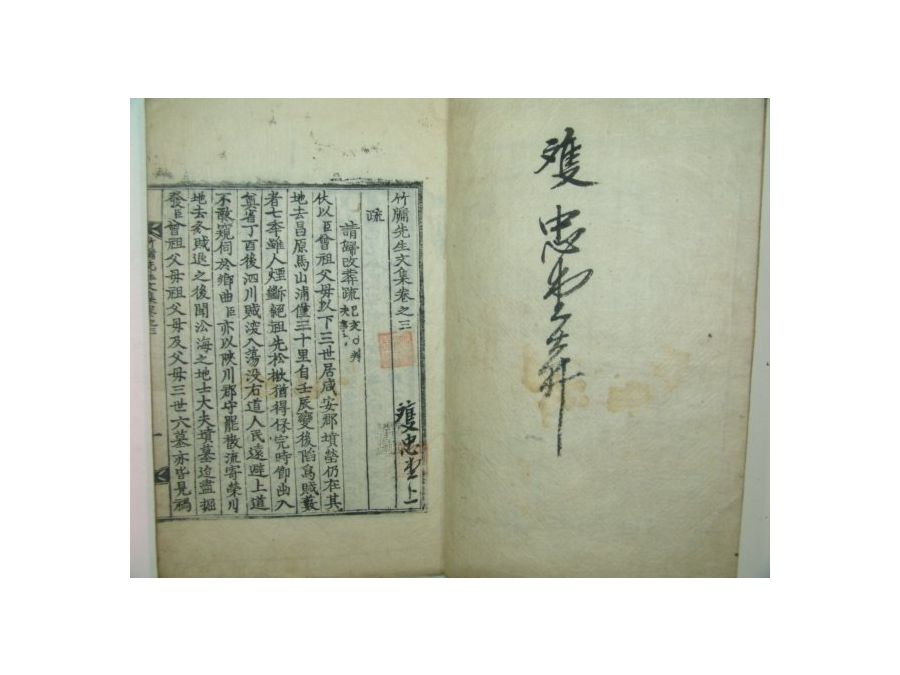 雙忠堂
竹牖先生文集卷之三
雙忠堂上
疏
請歸改葬疏
伏以臣曾祖父母以下三世居咸安郡墳塋仍在其
地去昌原馬山浦僅三十里自壬辰變後陷爲賊藪
者七季雖人煙斷絕祖先松楸猶得保完時卽出入
奠省丁酉後泗川賊深入蕩沒右道人民遠避上道
不敢窺伺於鄕曲臣亦以陜川郡守罷散流寄榮川
地去冬賊退之後聞沿海之地士大夫墳墓迨盡掘
發臣曾祖父母祖父母及父母三世六墓亦皆見禍
竹牖先生文集卷之三
一